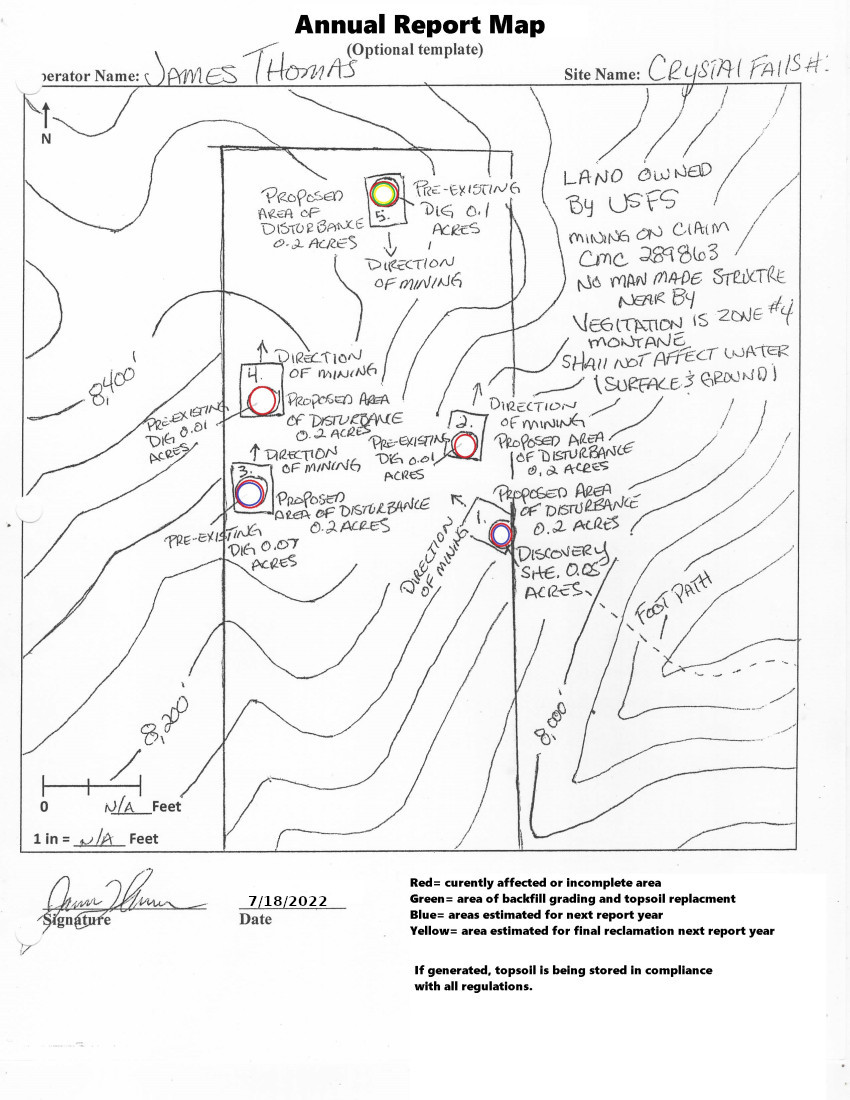 Annual Report Map
(Optional template)
perator Name: JAMES THOMAS
Site Name: CRYSTAL FALLS #:
N
LAND OWNED
BY USFS
MINING ON CLAIM
CMC 289863
NO MAN MADE STRUCTRE
NEAR BY
VEGITATION IS ZONE #4
MONTANE
SHALL NOT AFFECT WATER
(SURFACE & GROUND)
PROPOSED
AREA OF
DISTURBANCE
0.2 ACRES
5.
PRE-EXISTING
DIG 0.1
ACRES
DIRECTION
OF MINING
8,400'
4.
DIRECTION
OF MINING
PROPOSED AREA
OF DISTURBANCE
0.2 ACRES
PRE-EXISTING
DIG 0.01
ACRES
2.
DIRECTION
OF MINING
PROPOSED AREA
OF DISTURBANCE
0.2 ACRES
PRE-EXISTING
DIG 0.01
ACRES
3.
DIRECTION
OF MINING
PROPOSED
AREA OF DISTURBANCE
0.2 ACRES
PRE-EXISTING
DIG 0.07
ACRES
1.
DIRECTION
OF MINING
PROPOSED AREA
OF DISTURBANCE
0.2 ACRES
DISCOVERY
SITE. 0.05
ACRES
FOOT PATH
8,200'
8,000'
0 N/A Feet
1 in = N/A Feet
Signature
7/18/2022
Date
Red= curently affected or incomplete area
Green= area of backfill grading and topsoil replacment
Blue= areas estimated for next report year
Yellow= area estimated for final reclamation next report year
If generated, topsoil is being stored in compliance
with all regulations.